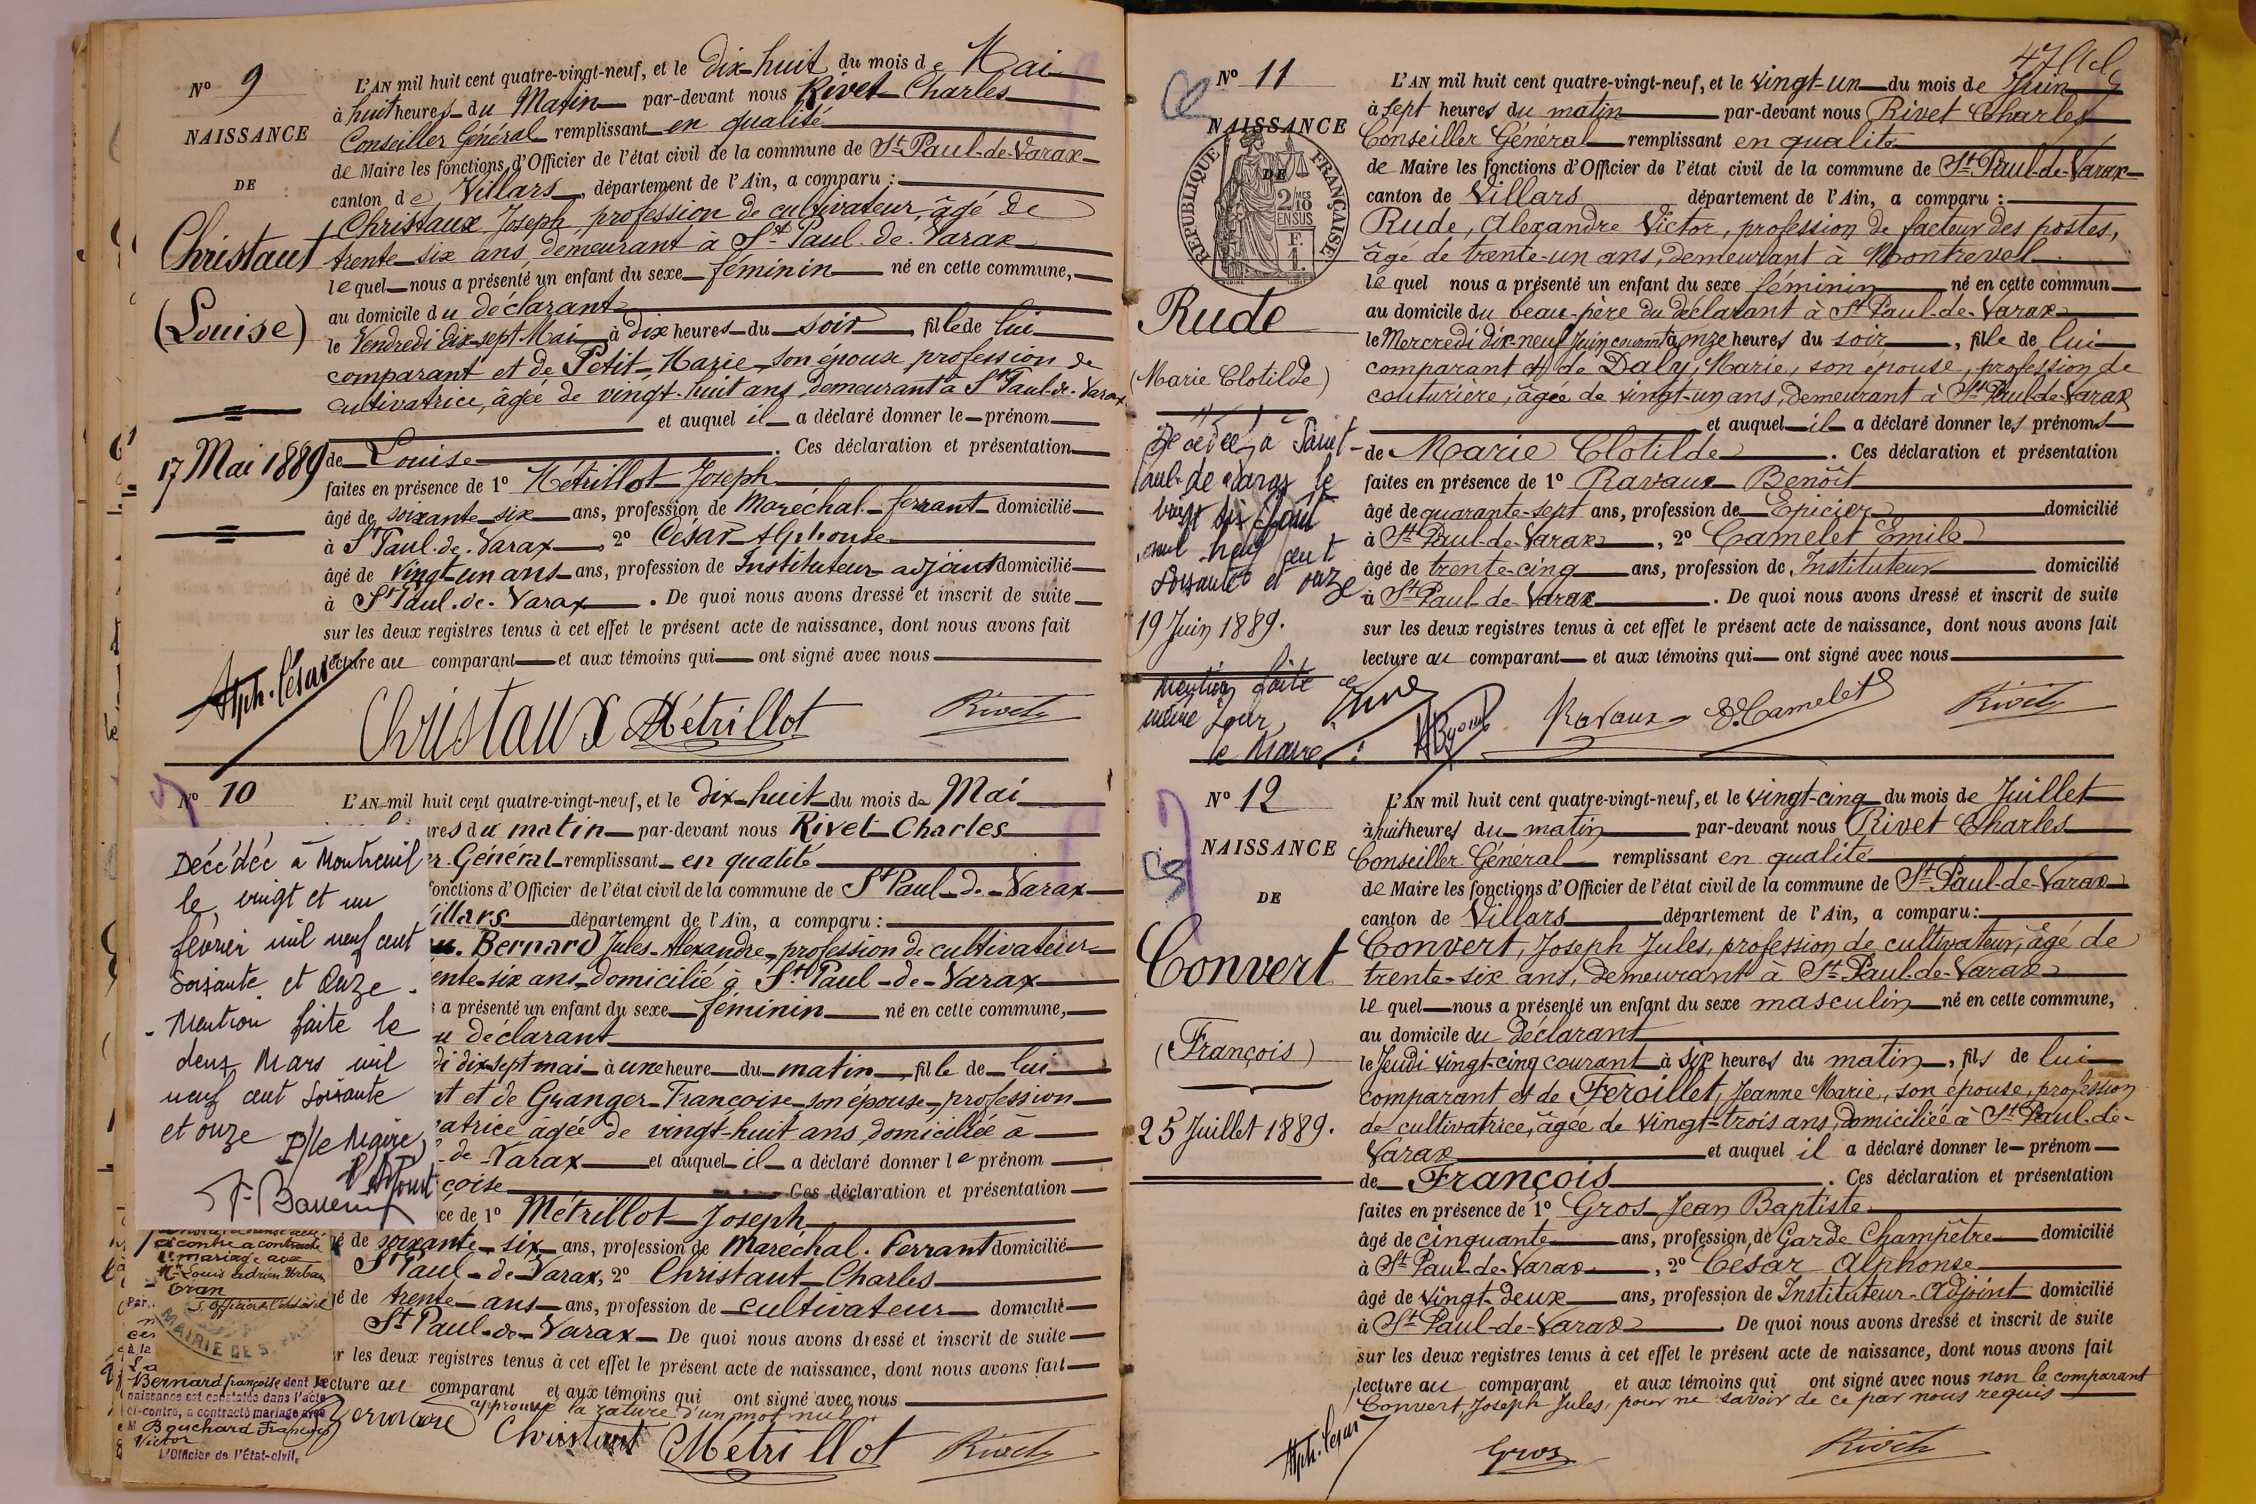 Nº 9
NAISSANCE
DE
Christaux
(Louise)
17 Mai 1889
L'AN mil huit cent quatre-vingt-neuf, et le dix-huit du mois de Mai
à huit heures du Matin par-devant nous Rivet Charles
Conseiller Général remplissant en qualité
de Maire les fonctions d'Officier de l'état civil de la commune de St Paul-de-Varax
canton de Villars, département de l'Ain, a comparu :
Christaux Joseph, profession de cultivateur, âgé de
trente-six ans, demeurant à St Paul-de-Varax
lequel nous a présenté un enfant du sexe féminin né en cette commune,
au domicile du déclarant
le Vendredi dix-sept Mai à dix heures du soir, fille de lui
comparant et de Petit Marie son épouse, profession de
cultivatrice, âgée de vingt-huit ans, demeurant à St Paul-de-Varax
et auquel il a déclaré donner le prénom
de Louise. Ces déclaration et présentation
faites en présence de 1º Métrillot Joseph
âgé de soixante-six ans, profession de Maréchal-ferrant domicilié
à St Paul-de-Varax, 2º César Alphonse
âgé de vingt-un ans ans, profession de Instituteur adjoint domicilié
à St Paul-de-Varax. De quoi nous avons dressé et inscrit de suite
sur les deux registres tenus à cet effet le présent acte de naissance, dont nous avons fait
lecture au comparant et aux témoins qui ont signé avec nous
Alph. César
Christaux Métrillot Rivet
Nº 10
L'AN mil huit cent quatre-vingt-neuf, et le dix-huit du mois de Mai
res du matin par-devant nous Rivet Charles
r Général remplissant en qualité
fonctions d'Officier de l'état civil de la commune de St Paul-de-Varax
illars département de l'Ain, a comparu :
Bernard Jules-Alexandre, profession de cultivateur
ente-six ans, domicilié à St Paul-de-Varax
a présenté un enfant du sexe féminin né en cette commune,
u déclarant
di dix-sept mai à une heure du matin, fille de lui
nt et de Granger Françoise son épouse, profession
atrice âgée de vingt-huit ans, domiciliée à
de Varax et auquel il a déclaré donner le prénom
çoise Ces déclaration et présentation
ce de 1º Métrillot Joseph
é de soixante-six ans, profession de Maréchal-Ferrant domicilié
St Paul-de-Varax, 2º Christaut Charles
é de trente ans ans, profession de cultivateur domicilié
St Paul-de-Varax De quoi nous avons dressé et inscrit de suite
r les deux registres tenus à cet effet le présent acte de naissance, dont nous avons fait
lecture au comparant et aux témoins qui ont signé avec nous
approuvé la rature d'un mot nul
Bernard Christaut Métrillot Rivet
Décédée à Montreuil
le vingt et un
février mil neuf cent
soixante et onze.
Mention faite le
deux Mars mil
neuf cent soixante
et onze P/le Maire,
l'Adjoint
ci contre a contracté
mariage avec
Mr Louis Adrien Urbain
MAIRIE DE S. PAU
Bernard françoise dont la
naissance est constatée dans l'acte
ci-contre, a contracté mariage avec
M Bouchard François
Victor
L'Officier de l'État-civil,
Nº 11
NAISSANCE
DE
RÉPUBLIQUE FRANÇAISE
2 MES 10
EN SUS
F.
1.
Rude
(Marie Clotilde)
Décédée à Saint-
Paul-de-Varax le
vingt six Août
mil neuf cent
soixante et onze
19 Juin 1889.
Mention faite ce
même jour,
le Maire :
L'AN mil huit cent quatre-vingt-neuf, et le vingt-un du mois de Juin
à sept heures du matin par-devant nous Rivet Charles
Conseiller Général remplissant en qualité
de Maire les fonctions d'Officier de l'état civil de la commune de St Paul-de-Varax
canton de Villars département de l'Ain, a comparu :
Rude, Alexandre Victor, profession de facteur des postes,
âgé de trente-un ans, demeurant à Montrevel
lequel nous a présenté un enfant du sexe féminin né en cette commun
au domicile du beau-père du déclarant à St Paul-de-Varax
le Mercredi dix-neuf Juin courant à onze heures du soir, fille de lui
comparant et de Daly, Marie, son épouse, profession de
couturière, âgée de vingt-un ans, demeurant à St Paul-de-Varax
et auquel il a déclaré donner les prénoms
de Marie Clotilde. Ces déclaration et présentation
faites en présence de 1º Ravaux Benoît
âgé de quarante-sept ans, profession de Epicier domicilié
à St Paul-de-Varax, 2º Camelet Emile
âgé de trente-cinq ans, profession de Instituteur domicilié
à St Paul-de-Varax. De quoi nous avons dressé et inscrit de suite
sur les deux registres tenus à cet effet le présent acte de naissance, dont nous avons fait
lecture au comparant et aux témoins qui ont signé avec nous
Rude Ravaux E. Camelet Rivet
Nº 12
NAISSANCE
DE
Convert
(François)
25 Juillet 1889.
L'AN mil huit cent quatre-vingt-neuf, et le vingt-cinq du mois de Juillet
à huit heures du matin par-devant nous Rivet Charles
Conseiller Général remplissant en qualité
de Maire les fonctions d'Officier de l'état civil de la commune de St Paul-de-Varax
canton de Villars département de l'Ain, a comparu :
Convert, Joseph Jules, profession de cultivateur, âgé de
trente-six ans, demeurant à St Paul-de-Varax
lequel nous a présenté un enfant du sexe masculin né en cette commune,
au domicile du déclarant
le Jeudi vingt-cinq courant à six heures du matin, fils de lui
comparant et de Feroillet, Jeanne Marie, son épouse, profession
de cultivatrice, âgée de vingt-trois ans, domiciliée à St Paul-de-
Varax et auquel il a déclaré donner le prénom
de François. Ces déclaration et présentation
faites en présence de 1º Gros Jean Baptiste
âgé de cinquante ans, profession de Garde Champêtre domicilié
à St Paul-de-Varax, 2º César Alphonse
âgé de vingt-deux ans, profession de Instituteur-Adjoint domicilié
à St Paul-de-Varax. De quoi nous avons dressé et inscrit de suite
sur les deux registres tenus à cet effet le présent acte de naissance, dont nous avons fait
lecture au comparant et aux témoins qui ont signé avec nous non le comparant
Convert, Joseph Jules, pour ne savoir de ce par nous requis
Alph. César Gros Rivet